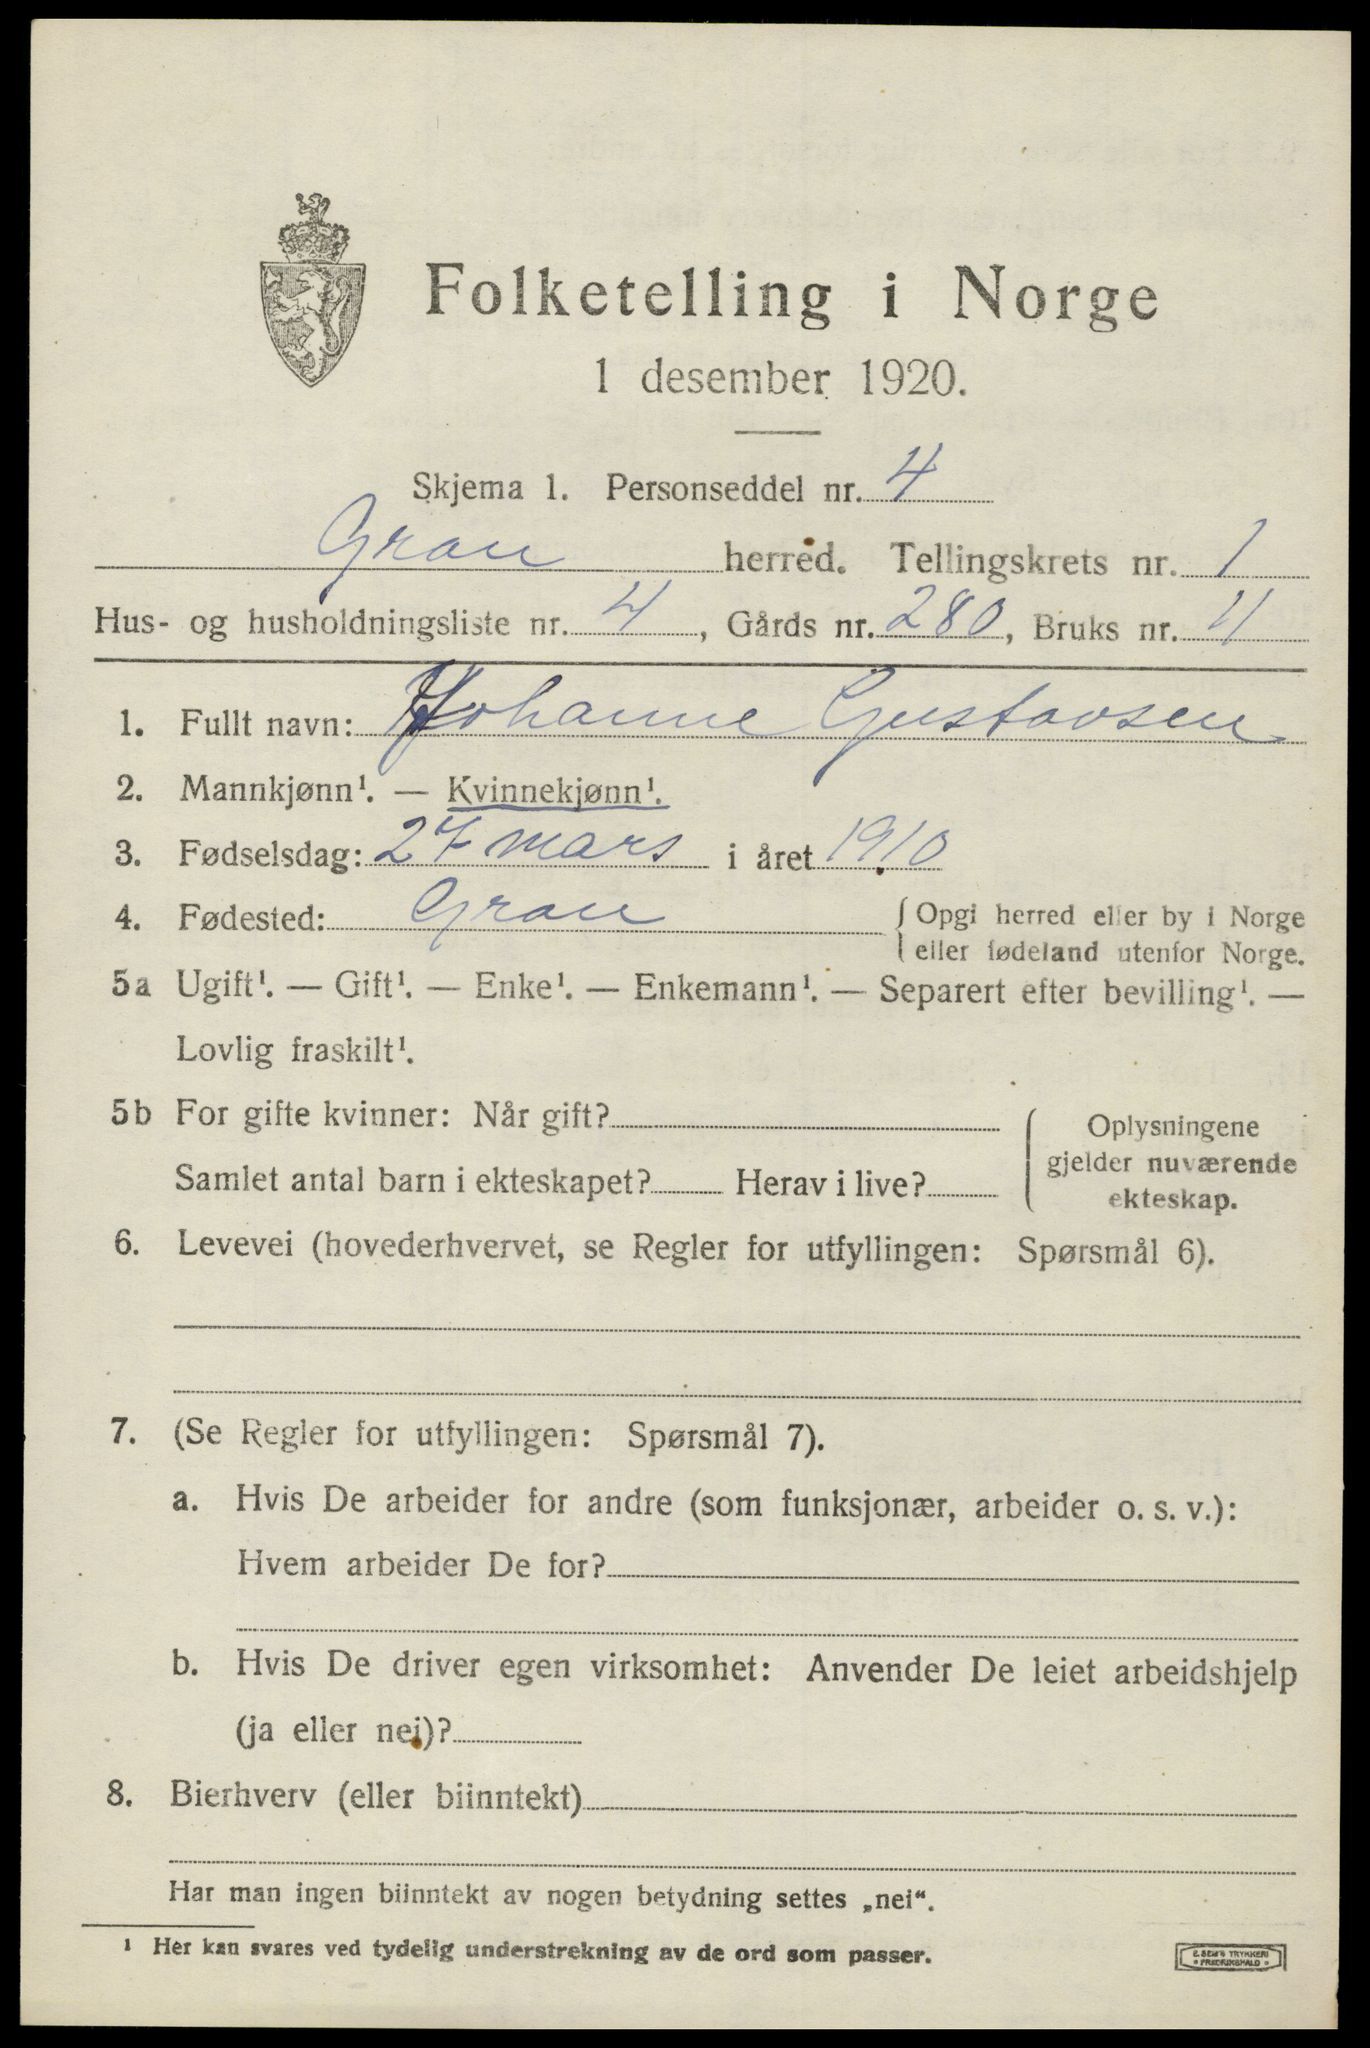 Folketelling i Norge
1 desember 1920.
Skjema 1. Personseddel nr. 4
Gran herred. Tellingskrets nr. 1
Hus- og husholdningsliste nr. 4, Gårds nr. 280, Bruks nr. 4
1. Fullt navn: Johanne Gustavsen
2. Mannkjønn¹. — Kvinnekjønn¹.
3. Fødselsdag: 27 mars i året 1910
4. Fødested: Gran { Opgi herred eller by i Norge
eller fødeland utenfor Norge.
5a Ugift¹. — Gift¹. — Enke¹. — Enkemann¹. — Separert efter bevilling¹. —
Lovlig fraskilt¹.
5b For gifte kvinner: Når gift?
Samlet antal barn i ekteskapet? Herav i live?
Oplysningene
gjelder nuværende
ekteskap.
6. Levevei (hovederhvervet, se Regler for utfyllingen: Spørsmål 6).
7. (Se Regler for utfyllingen: Spørsmål 7).
a. Hvis De arbeider for andre (som funksjonær, arbeider o. s. v.):
Hvem arbeider De for?
b. Hvis De driver egen virksomhet: Anvender De leiet arbeidshjelp
(ja eller nei)?
8. Bierhverv (eller biinntekt)
Har man ingen biinntekt av nogen betydning settes „nei“.
¹ Her kan svares ved tydelig understrekning av de ord som passer.
E. SEM'S TRYKKERI
FREDRIKSHALD